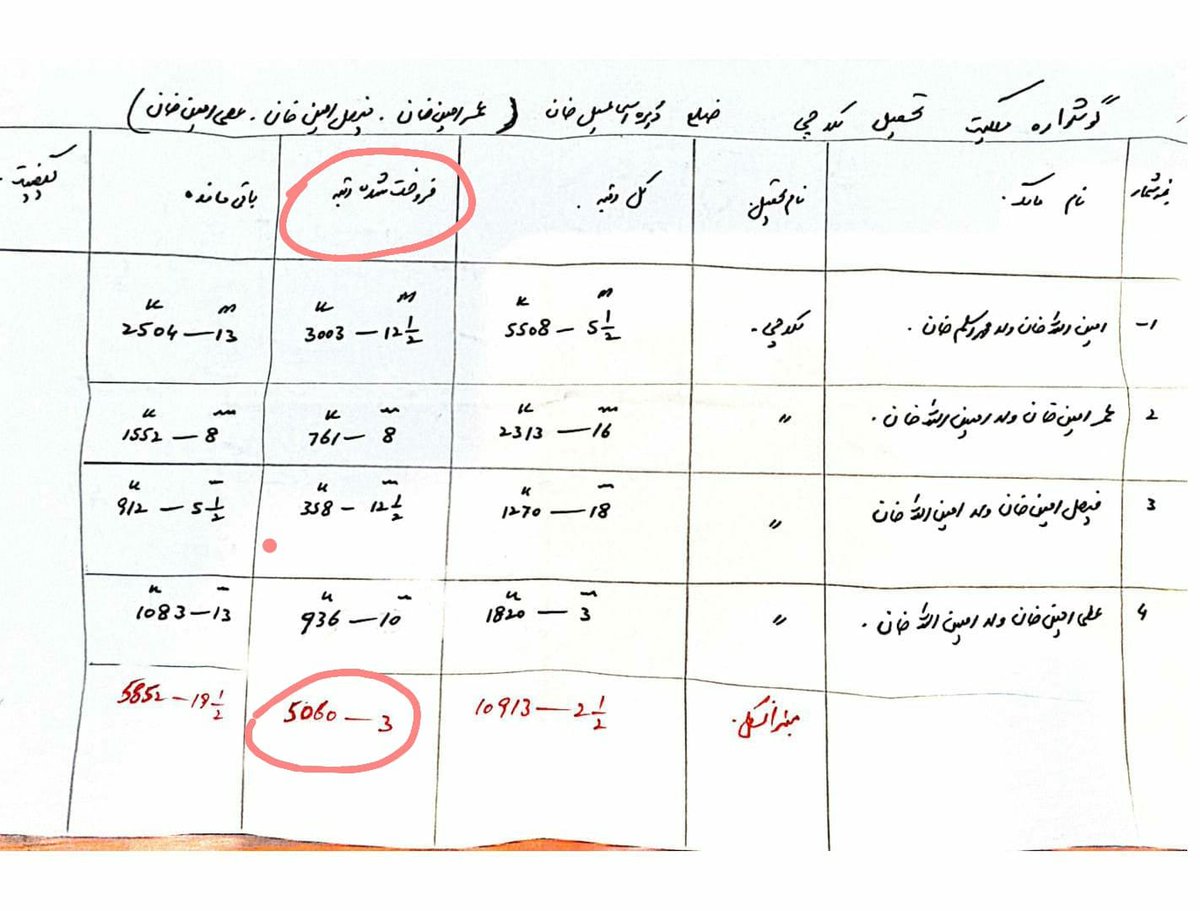 گوشواره ملکیت تحصیل کلاچی ضلع ڈیرہ اسماعیل خان (عمر امین خان . فیصل امین خان . علی امین خان)
نمبر شمار نام مالک . نام تحصیل . کل رقبہ . فروخت شدہ رقبہ باقی ماندہ کیفیت .
K M K M K M
1- امین اللہ خان ولد محمد اسلم خان . کلاچی . 5508 — 5 1/2 3003 — 12 1/2 2504 — 13
K M K M K M
2 عمر امین خان ولد امین اللہ خان . " 2313 — 16 761 — 8 1552 — 8
K M K M K M
3 فیصل امین خان ولد امین اللہ خان " 1270 — 18 358 — 12 1/2 912 — 5 1/2
K M K M K M
4 علی امین خان ولد امین اللہ خان . " 1820 — 3 936 — 10 1083 — 13
میزان کل . 10913 — 2 1/2 5060 — 3 5852 — 19 1/2